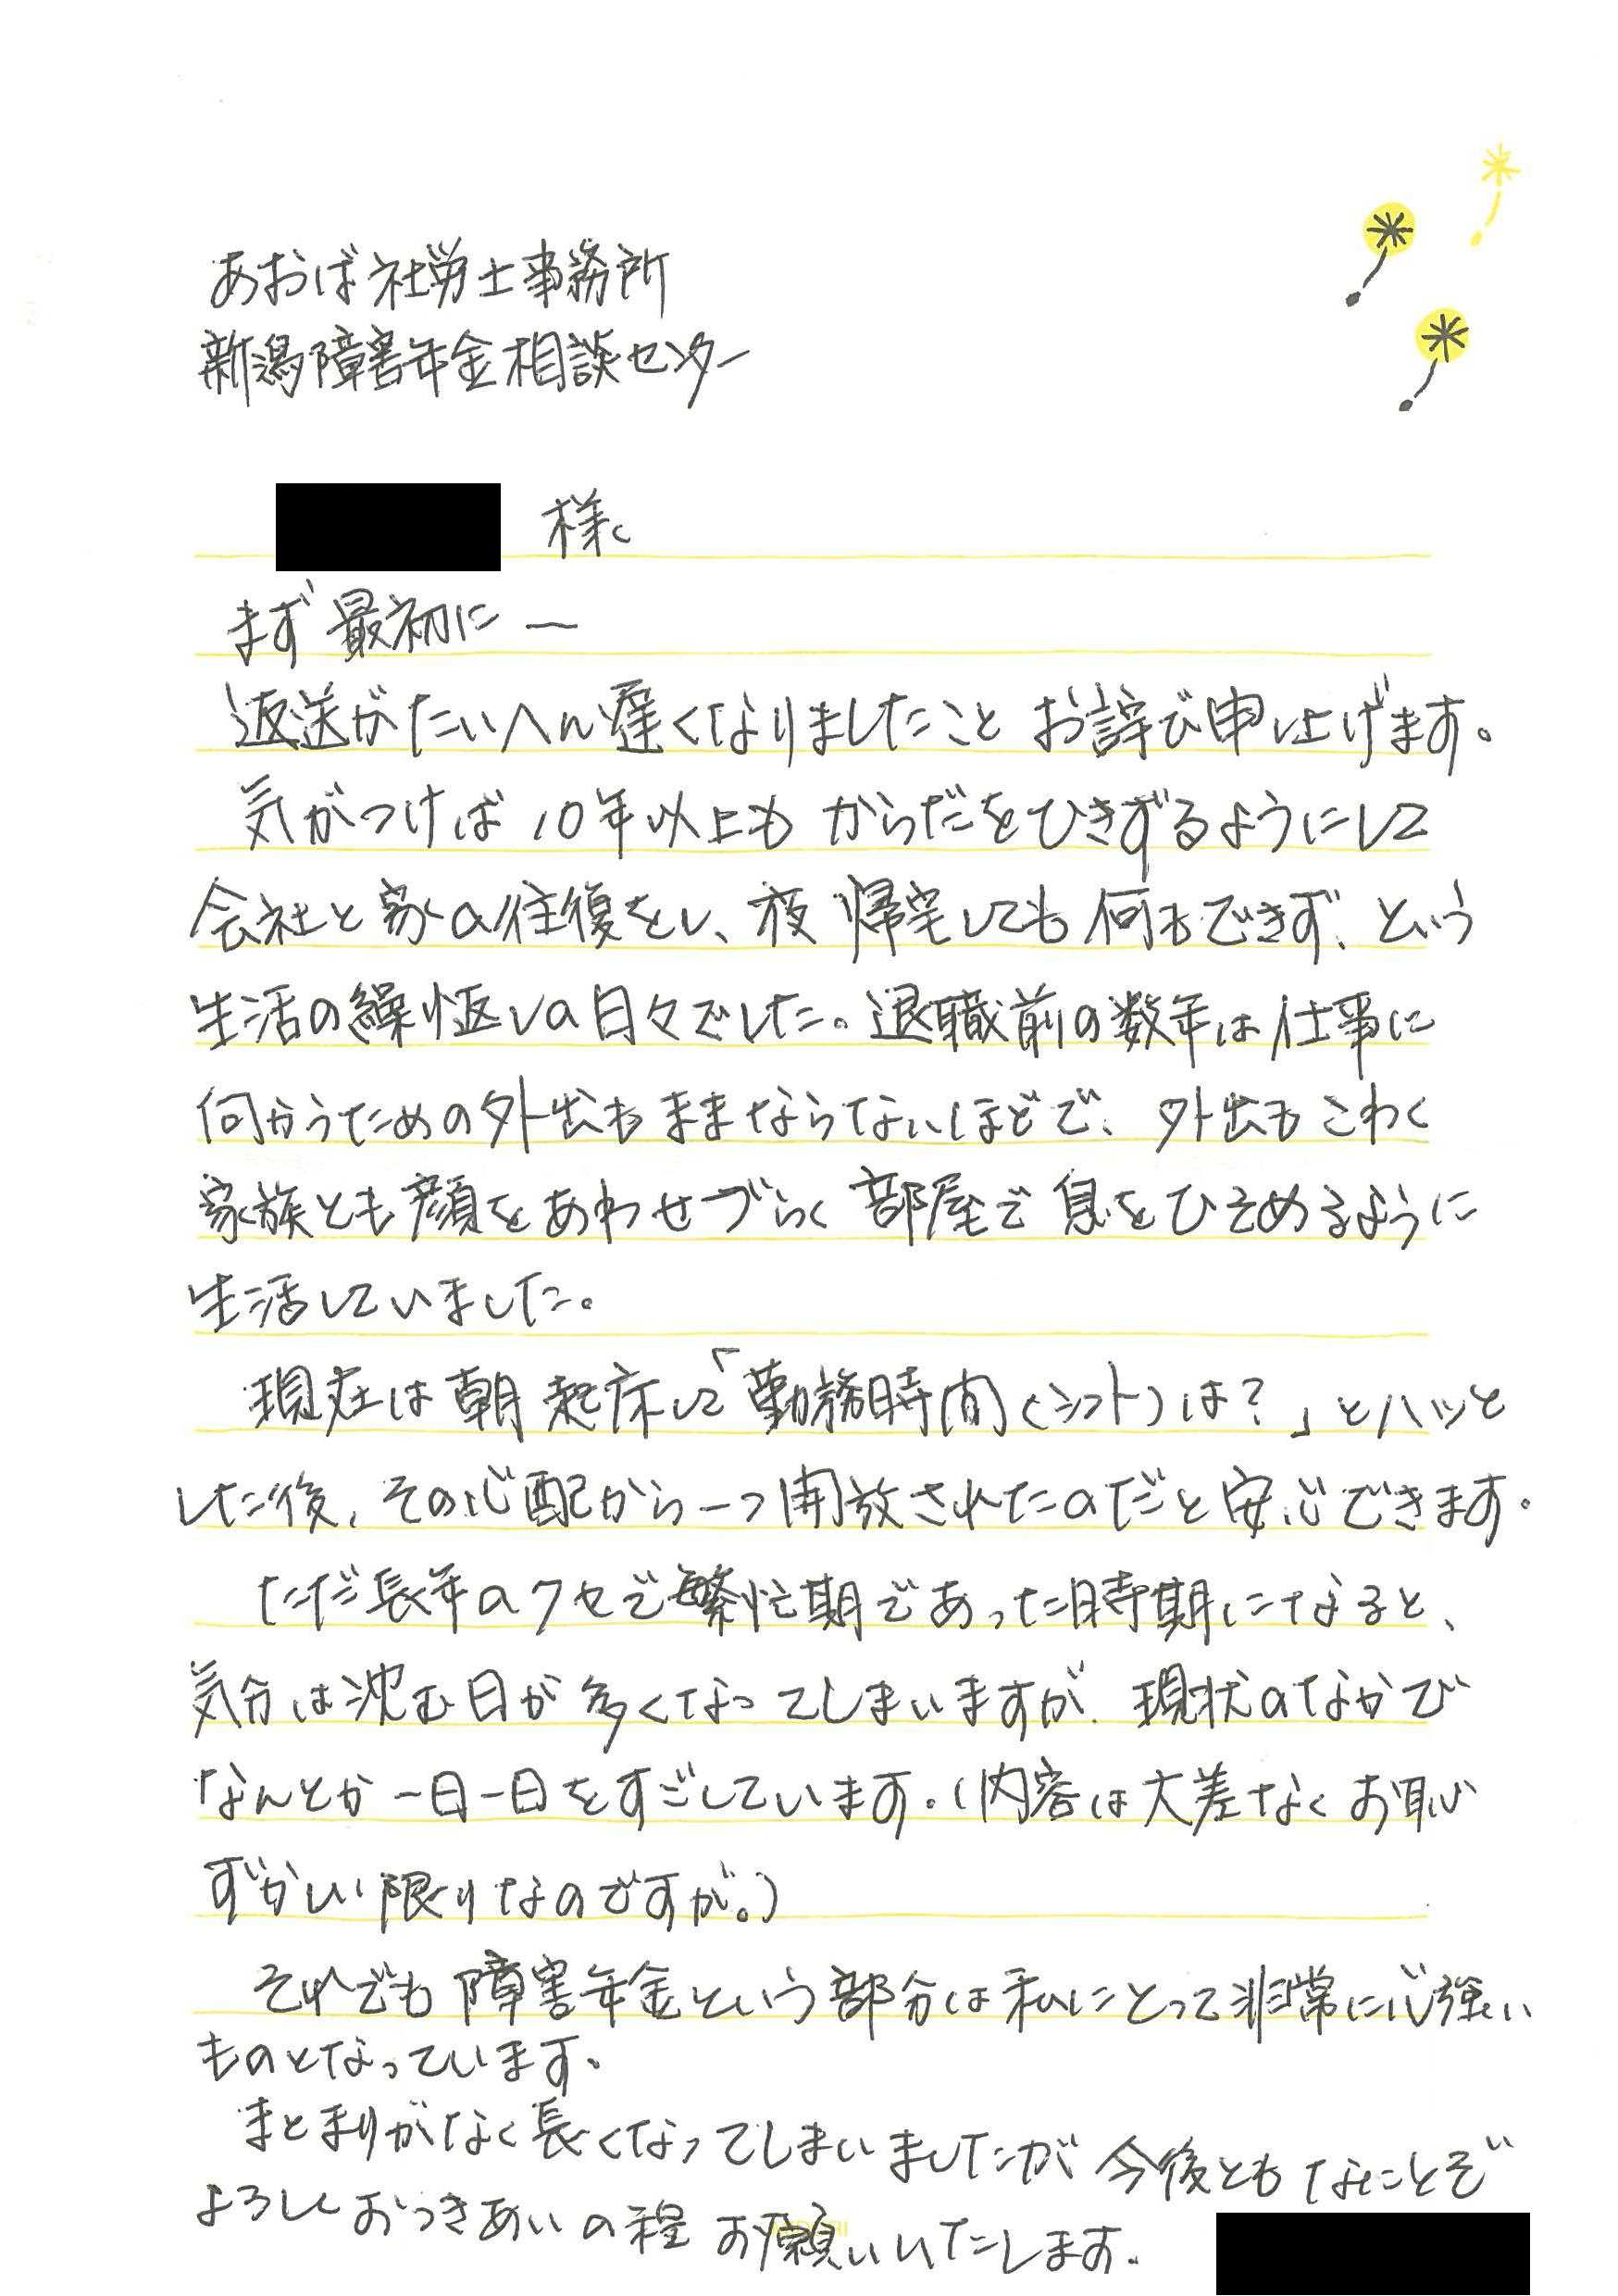 あおば社労士事務所
新潟障害年金相談センター
様、
まず最初に ー
返送がたいへん遅くなりましたこと お詫び申し上げます。
気がつけば 10年以上も からだをひきずるようにして
会社と家の往復をし、夜 帰宅しても 何もできず、という
生活の繰り返しの日々でした。退職前の数年は仕事に
向かうための外出もままならないほどで、外出もこわく
家族とも顔をあわせづらく 部屋で 息をひそめるように
生活していました。
現在は朝 起床して「勤務時間(シフト)は?」とハッと
した後、その心配から一つ開放されたのだと安心できます。
ただ長年のクセで繁忙期であった時期になると、
気分は沈む日が多くなってしまいますが、現状のなかで
なんとか一日一日をすごしています。(内容は大差なくお恥
ずかしい限りなのですが。)
それでも 障害年金という部分は私にとって非常に心強い
ものとなっています。
まとまりがなく長くなってしまいましたが 今後とも なにとぞ
よろしくおつきあいの程 お願いいたします。